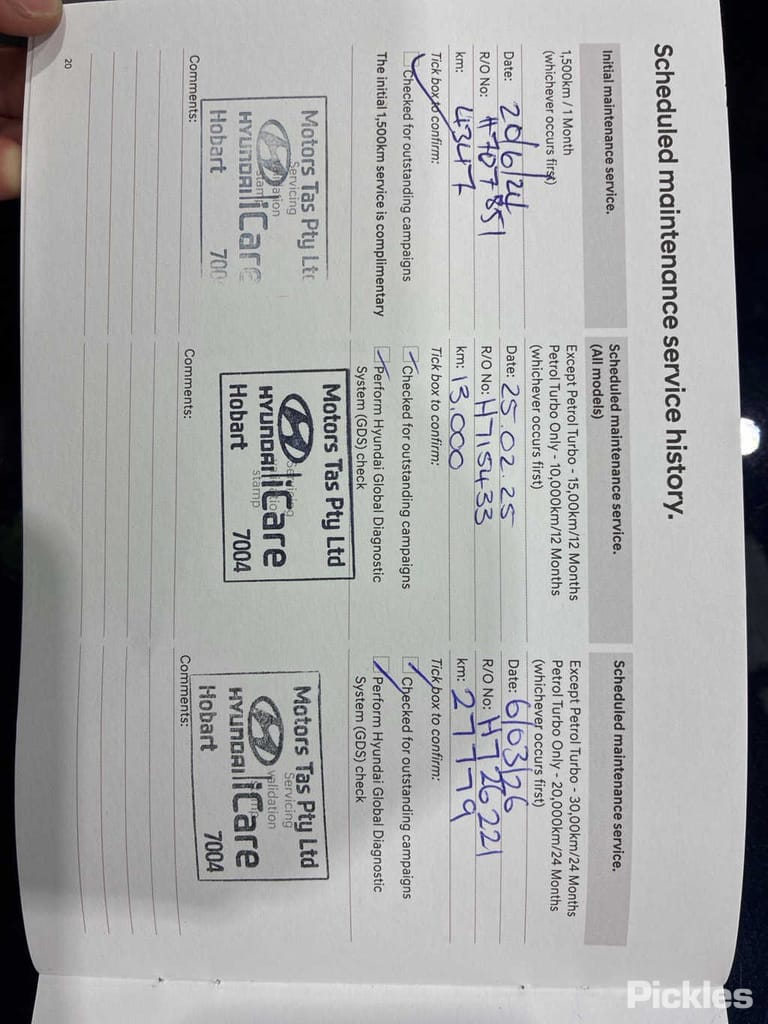 Scheduled maintenance service history.
Initial maintenance service.
1,500km / 1 Month
(whichever occurs first)
Date: 20/6/24
R/O No: H707851
km: 4347
Tick box to confirm:
Checked for outstanding campaigns
The initial 1,500km service is complimentary
Motors Tas Pty Ltd
Servicing
HYUNDAI iCare
Hobart 700
Comments:
Scheduled maintenance service.
(All models)
Except Petrol Turbo - 15,00km/12 Months
Petrol Turbo Only - 10,000km/12 Months
(whichever occurs first)
Date: 25.02.25
R/O No: H715433
km: 13,000
Tick box to confirm:
Checked for outstanding campaigns
Perform Hyundai Global Diagnostic
System (GDS) check
Motors Tas Pty Ltd
Servicing
stamp
HYUNDAI iCare
Hobart 7004
Comments:
Scheduled maintenance service.
Except Petrol Turbo - 30,00km/24 Months
Petrol Turbo Only - 20,000km/24 Months
(whichever occurs first)
Date: 6/03/26
R/O No: H726221
km: 27779
Tick box to confirm:
Checked for outstanding campaigns
Perform Hyundai Global Diagnostic
System (GDS) check
Motors Tas Pty Ltd
Servicing
validation
HYUNDAI iCare
Hobart 7004
Comments:
20
Pickles